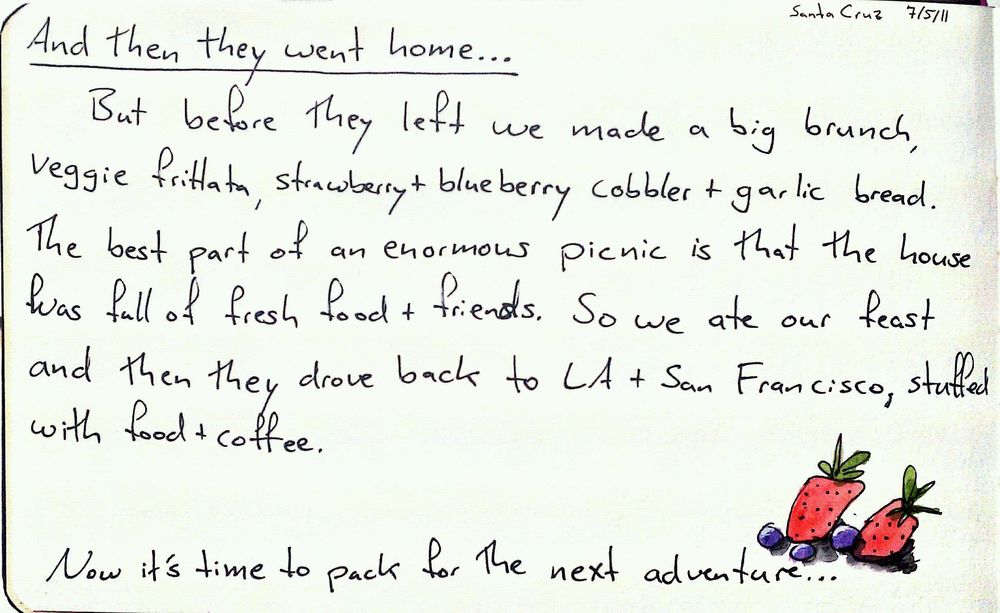 Santa Cruz 7/5/11
And then they went home...
But before they left we made a big brunch,
veggie frittata, strawberry + blueberry cobbler + garlic bread.
The best part of an enormous picnic is that the house
was full of fresh food + friends. So we ate our feast
and then they drove back to LA + San Francisco, stuffed
with food + coffee.
Now it's time to pack for the next adventure...